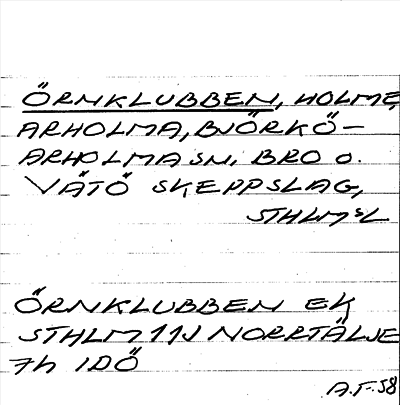 ÖRNKLUBBEN, HOLME,
ARHOLMA, BJÖRKÖ-
ARHOLMA SN, BRO O.
VÄTÖ SKEPPSLAG,
STHLMSL
ÖRNKLUBBEN EK
STHLM 11J NORRTÄLJE
7h IDÖ
A.F. 58